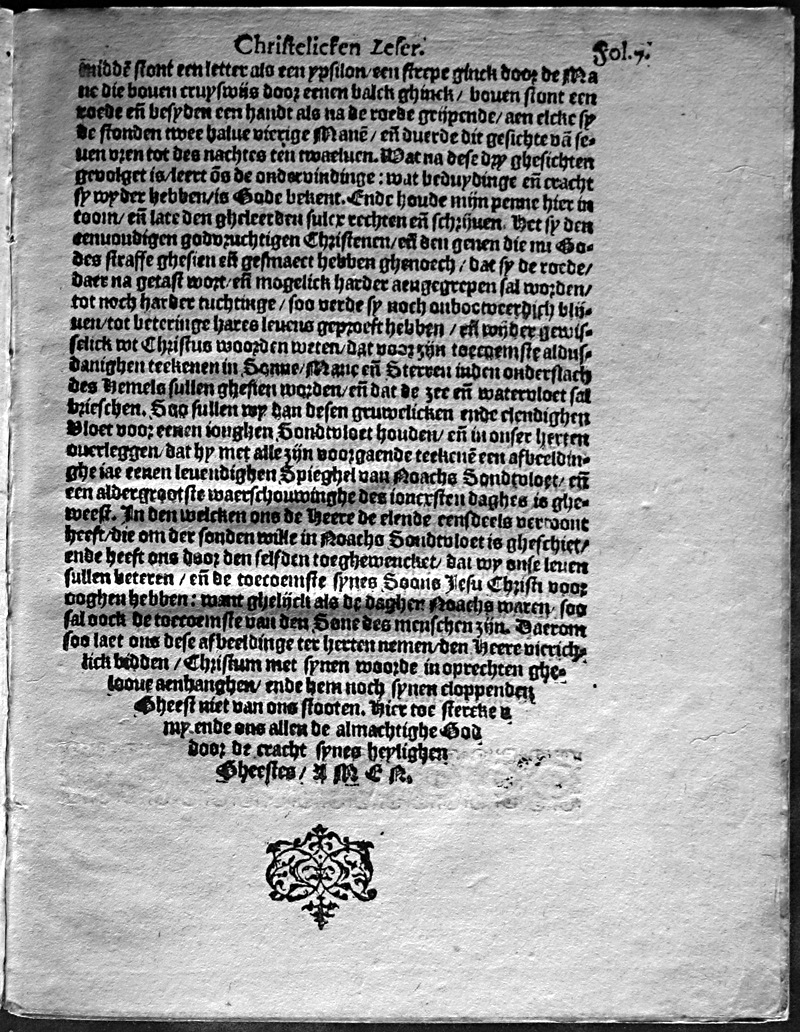 Christelicken Leser.
Fol. 7.
middē stont een letter als een ypsilon/ een strepe ginck door de Ma
ne die bouen cruyswijs door eenen balck ghinck/ bouen stont een
roede eñ besyden een handt als na de roede grijpende/ aen elcke sy
de stonden twee halue vierige Manē/ eñ duerde dit gesichte vā se-
uen vren tot des nachtes ten twaeluen. Wat na dese dry ghesichten
geuolget is/ leert ōs de ondervindinge: wat beduydinge eñ cracht
sy wyder hebben/ is Gode bekent. Ende houde mijn penne hier in
toom/ eñ late den gheleerden sulcx rechten eñ schrijuen. Het sy den
eenuoudigen godvruchtigen Christenen/ eñ den genen die nu Go-
des straffe ghesien eñ gesmaect hebben ghenoech/ dat sy de roede/
daer na getast wort/ eñ mogelick harder aengegrepen sal worden/
tot noch harder tuchtinge/ soo verde sy noch onboetveerdich blij-
uen/ tot beteringe hares leuens geproeft hebben/ eñ wijder gewis-
selick wt Christus woorden weten/ dat voor zijn toecoemste aldus-
danighen teekenen in Sonne/ Mane eñ Sterren inden onderslach
des Hemels sullen ghesien worden/ eñ dat de zee eñ watervloet sal
brieschen. Soo sullen wy dan desen gruwelicken ende elendighen
Vloet voor eenen ionghen Sondtvloet houden/ eñ in onser herten
ouerleggen/ dat hy met alle zijn voorgaende teekenē een afbeeldin-
ghe iae eenen leuendighen Spieghel van Noachs Sondtvloet/ eñ
een aldergrootste waerschouwinghe des ioncxsten daghes is ghe-
weest. In den welcken ons de Heere de elende eensdeels vertoont
heeft/ die om der sonden wille in Noachs Sondtvloet is gheschiet/
ende heeft ons door den selfden toeghewencket/ dat wy onse leuen
sullen beteren/ eñ de toecoemste synes Soons Jesu Christi voor
ooghen hebben: want ghelijck als de daghen Noachs waren/ soo
sal oock de toecoemste van den Sone des menschen zijn. Daerom
soo laet ons dese afbeeldinge ter herten nemen/ den Heere vierich-
lick bidden/ Christum met synen woorde in oprechten ghe-
loove aenhanghen/ ende hem noch synen cloppenden
Gheest niet van ons stooten. Hier toe stercke u
my ende ons allen de almachtighe God
door de cracht synes heylighen
Gheestes/ A M E N.